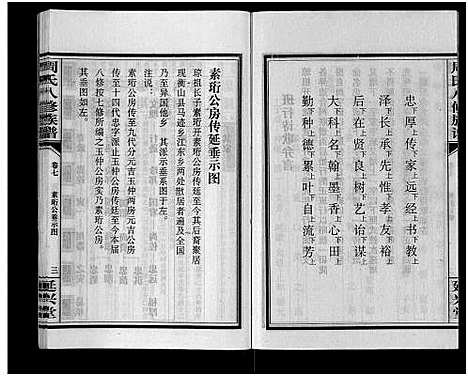 周氏八修族谱
延兴堂
忠上厚下传上家下远上经下书上教下
泽上长下承上先下惟上孝下友上裕下
启上后下在上贤下良上树下诒上谋下
大上科下名上翰下墨上香下心上田下
勤上种下德上累下叶上自上流下芳上
素珩公房传延垂示图
琼祖长子素珩开素珩公房传延至今其后裔聚居
现衡山县马迹乡江东乡两处散居者遍及全国
乃至异国他乡 其派示垂系图于左
注说
素珩公房传至九代分元吉玉仲两房元吉公房
传至十四代忠字派止玉仲公房传延至今本届
八修按七修所编之玉仲公房实乃素珩公房
其垂系图如左
周氏八修族谱
卷七 素珩公垂示图
三
延兴堂